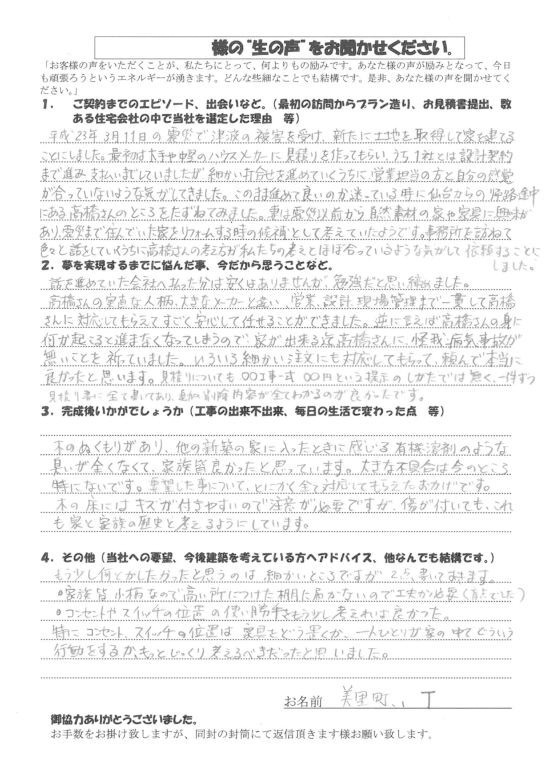 様の“生の声”をお聞かせください。
「お客様の声をいただくことが、私たちにとって、何よりもの励みです。あなた様の声が励みとなって、今日
も頑張ろうというエネルギーが湧きます。どんな些細なことでも結構です。是非、あなた様の声を聞かせてく
ださい。」
1. ご契約までのエピソード、出会いなど。（最初の訪問からプラン造り、お見積書提出、数
ある住宅会社の中で当社を選定した理由 等）
平成23年3月11日の震災で津波の被害を受け、新たに土地を取得して家を建てる
ことにしました。最初は大手や中堅のハウスメーカーに見積りを作ってもらい、うち1社とは設計契約
まで進み支払いまでしていましたが細かい打合せを進めていくうちに営業担当の方と自分の感覚
が合っていないような気がしてきました。このまま進めて良いのか迷っている時に仙台からの帰路途中
にある高橋さんのところをたずねてみました。妻は震災以前から自然素材の家や家具に興味が
あり、震災まで住んでいた家をリフォームする時の候補として考えていたようです。事務所を訪ねて
色々と話をしていくうちに高橋さんの考え方が私たちの考えとほぼ合っているような気がして依頼することに
しました。
2. 夢を実現するまでに悩んだ事、今だから思うことなど。
話を進めていた会社へ払った分は安くはありませんが、勉強だと思い諦めました。
高橋さんの実直な人柄、大きなメーカーと違い、営業、設計、現場管理まで一貫して高橋
さんに対応してもらえてすごく安心して任せることができました。逆に言えば高橋さんの身に
何か起こると進まなくなってしまうので、家が出来る迄高橋さんに、怪我、病気、事故が
無いことを祈っていました。いろいろ細かい注文にも対応してもらって、頼んで本当に
良かったと思います。見積りについても〇〇工事一式〇〇円という提示のしかたでは無く、一件ずつ
見積り書に全て書いてあり、追加削除内容が全てわかるのが良かったです。
3. 完成後いかがでしょうか（工事の出来不出来、毎日の生活で変わった点 等）
木のぬくもりがあり、他の新築の家に入ったときに感じる有機溶剤のような
臭いが全くなくて、家族皆良かったと思っています。大きな不具合は今のところ
特にないです。要望した事について、とにかく全て対応してもらえたおかげです。
木の床にはキズが付きやすいので注意が必要ですが、傷が付いても、これ
も家と家族の歴史と考えるようにしています。
4. その他（当社への要望、今後建築を考えている方へアドバイス、他なんでも結構です。）
もう少し何とかしたかったと思うのは細かいところですが2点、書いておきます。
○家族皆小柄なので高い所につけた棚に届かないので工夫が必要（でした）
○コンセントやスイッチの位置の使い勝手をもう少し考えれば良かった。
特にコンセント、スイッチの位置は家具をどう置くか、一人ひとりが家の中でどういう
行動をするか、もっとじっくり考えるべきだったと思いました。
お名前 美里町 T
御協力ありがとうございました。
お手数をお掛け致しますが、同封の封筒にて返信頂きます様お願い致します。